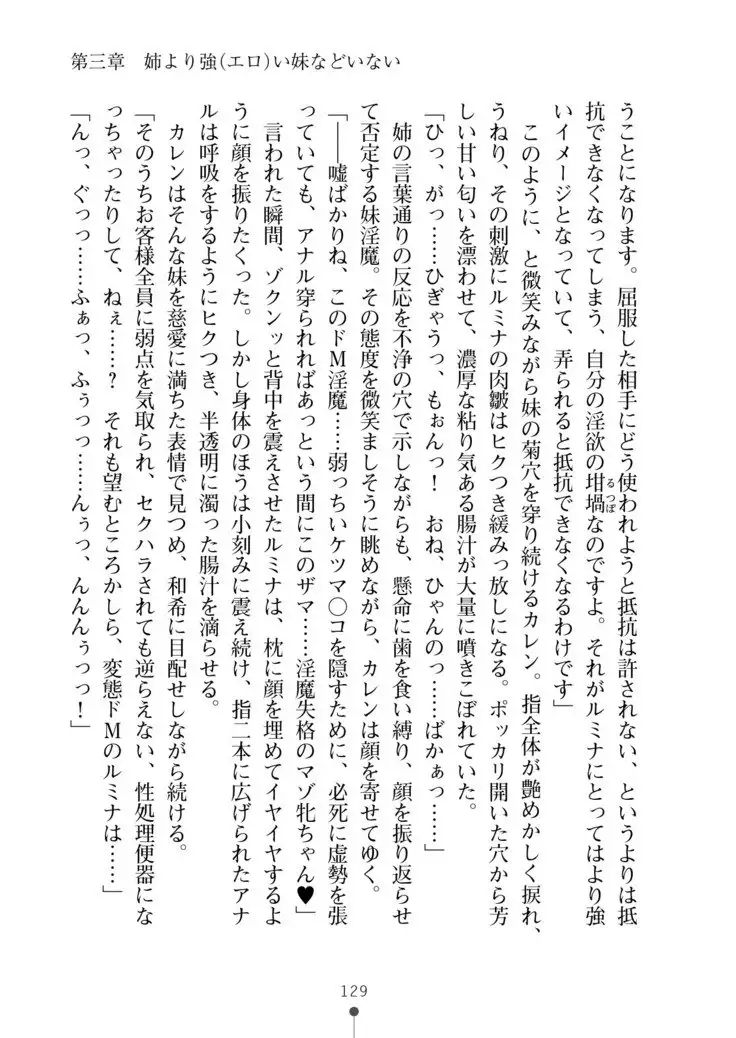 第三章　姉より強(エロ)い妹などいない
うことになります。屈服した相手にどう使われようと抵抗は許されない、というよりは抵
抗できなくなってしまう、自分の淫欲の坩堝なのですよ。それがルミナにとってはより強
いイメージとなっていて、弄られると抵抗できなくなるわけです」
　このように、と微笑みながら妹の菊穴を穿り続けるカレン。指全体が艶めかしく捩れ、
うねり、その刺激にルミナの肉皺はヒクつき緩みっ放しになる。ポッカリ開いた穴から芳
しい甘い匂いを漂わせて、濃厚な粘り気ある腸汁が大量に噴きこぼれていた。
「ひっ、がっ……ひぎゃうっ、もぉんっ！　おね、ひゃんのっ……ばかぁっ……」
　姉の言葉通りの反応を不浄の穴で示しながらも、懸命に歯を食い縛り、顔を振り返らせ
て否定する妹淫魔。その態度を微笑ましそうに眺めながら、カレンは顔を寄せてゆく。
「――嘘ばかりね、このドＭ淫魔……弱っちいケツマ〇コを隠すために、必死に虚勢を張
っていても、アナル穿られればあっという間にこのザマ……淫魔失格のマゾ牝ちゃん♥」
　言われた瞬間、ゾクンッと背中を震えさせたルミナは、枕に顔を埋めてイヤイヤするよ
うに顔を振りたくった。しかし身体のほうは小刻みに震え続け、指二本に広げられたアナ
ルは呼吸をするようにヒクつき、半透明に濁った腸汁を滴らせる。
　カレンはそんな妹を慈愛に満ちた表情で見つめ、和希に目配せしながら続ける。
「そのうちお客様全員に弱点を気取られ、セクハラされても逆らえない、性処理便器にな
っちゃったりして、ねぇ……？　それも望むところかしら、変態ドＭのルミナは……」
「んっ、ぐぅっ……ふぁっ、ふぅっっ……んぅっ、んんんぅっっ！」
るつぼ
129